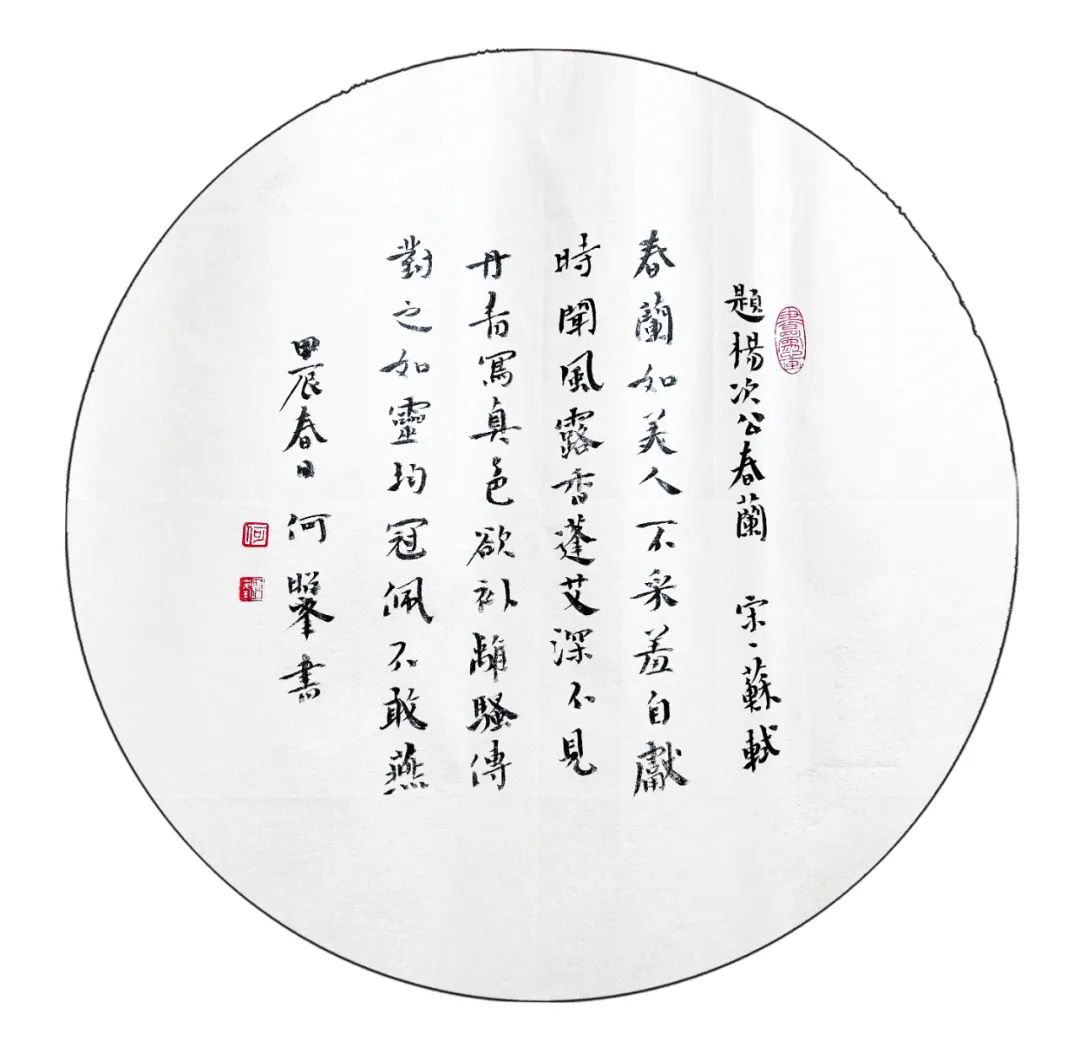 題楊次公春蘭 宋、蘇軾
春蘭如美人不采羞自獻
時聞風露香蓬艾深不見
丹青寫真色欲補離騷傳
對之如靈均冠佩不敢燕
甲辰春日何書
何